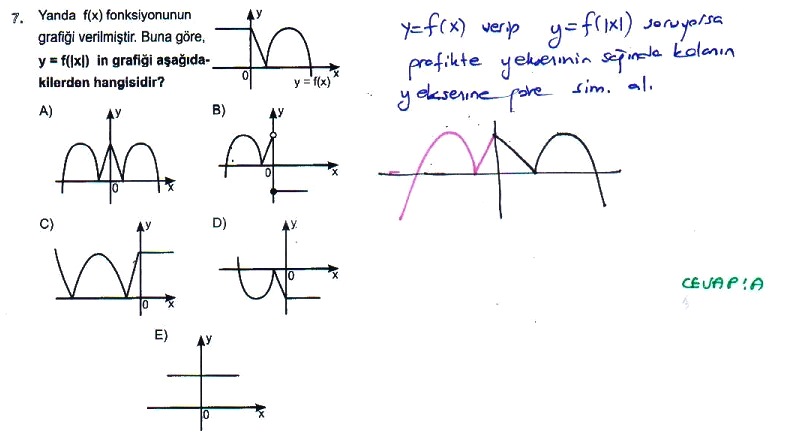 7. Yanda f(x) fonksiyonunun
grafiği verilmiştir. Buna göre,
y = f(|x|) in grafiği aşağıda-
kilerden hangisidir?
y
0
x
y = f(x)
y=f(x) verip y=f(|x|) soruyorsa
grafikte y ekseninin sağında kalanın
y eksenine göre sim. al.
A)
y
0
x
B)
y
0
x
C)
y
0
x
D)
y
0
x
CEVAP:A
E)
y
0
x